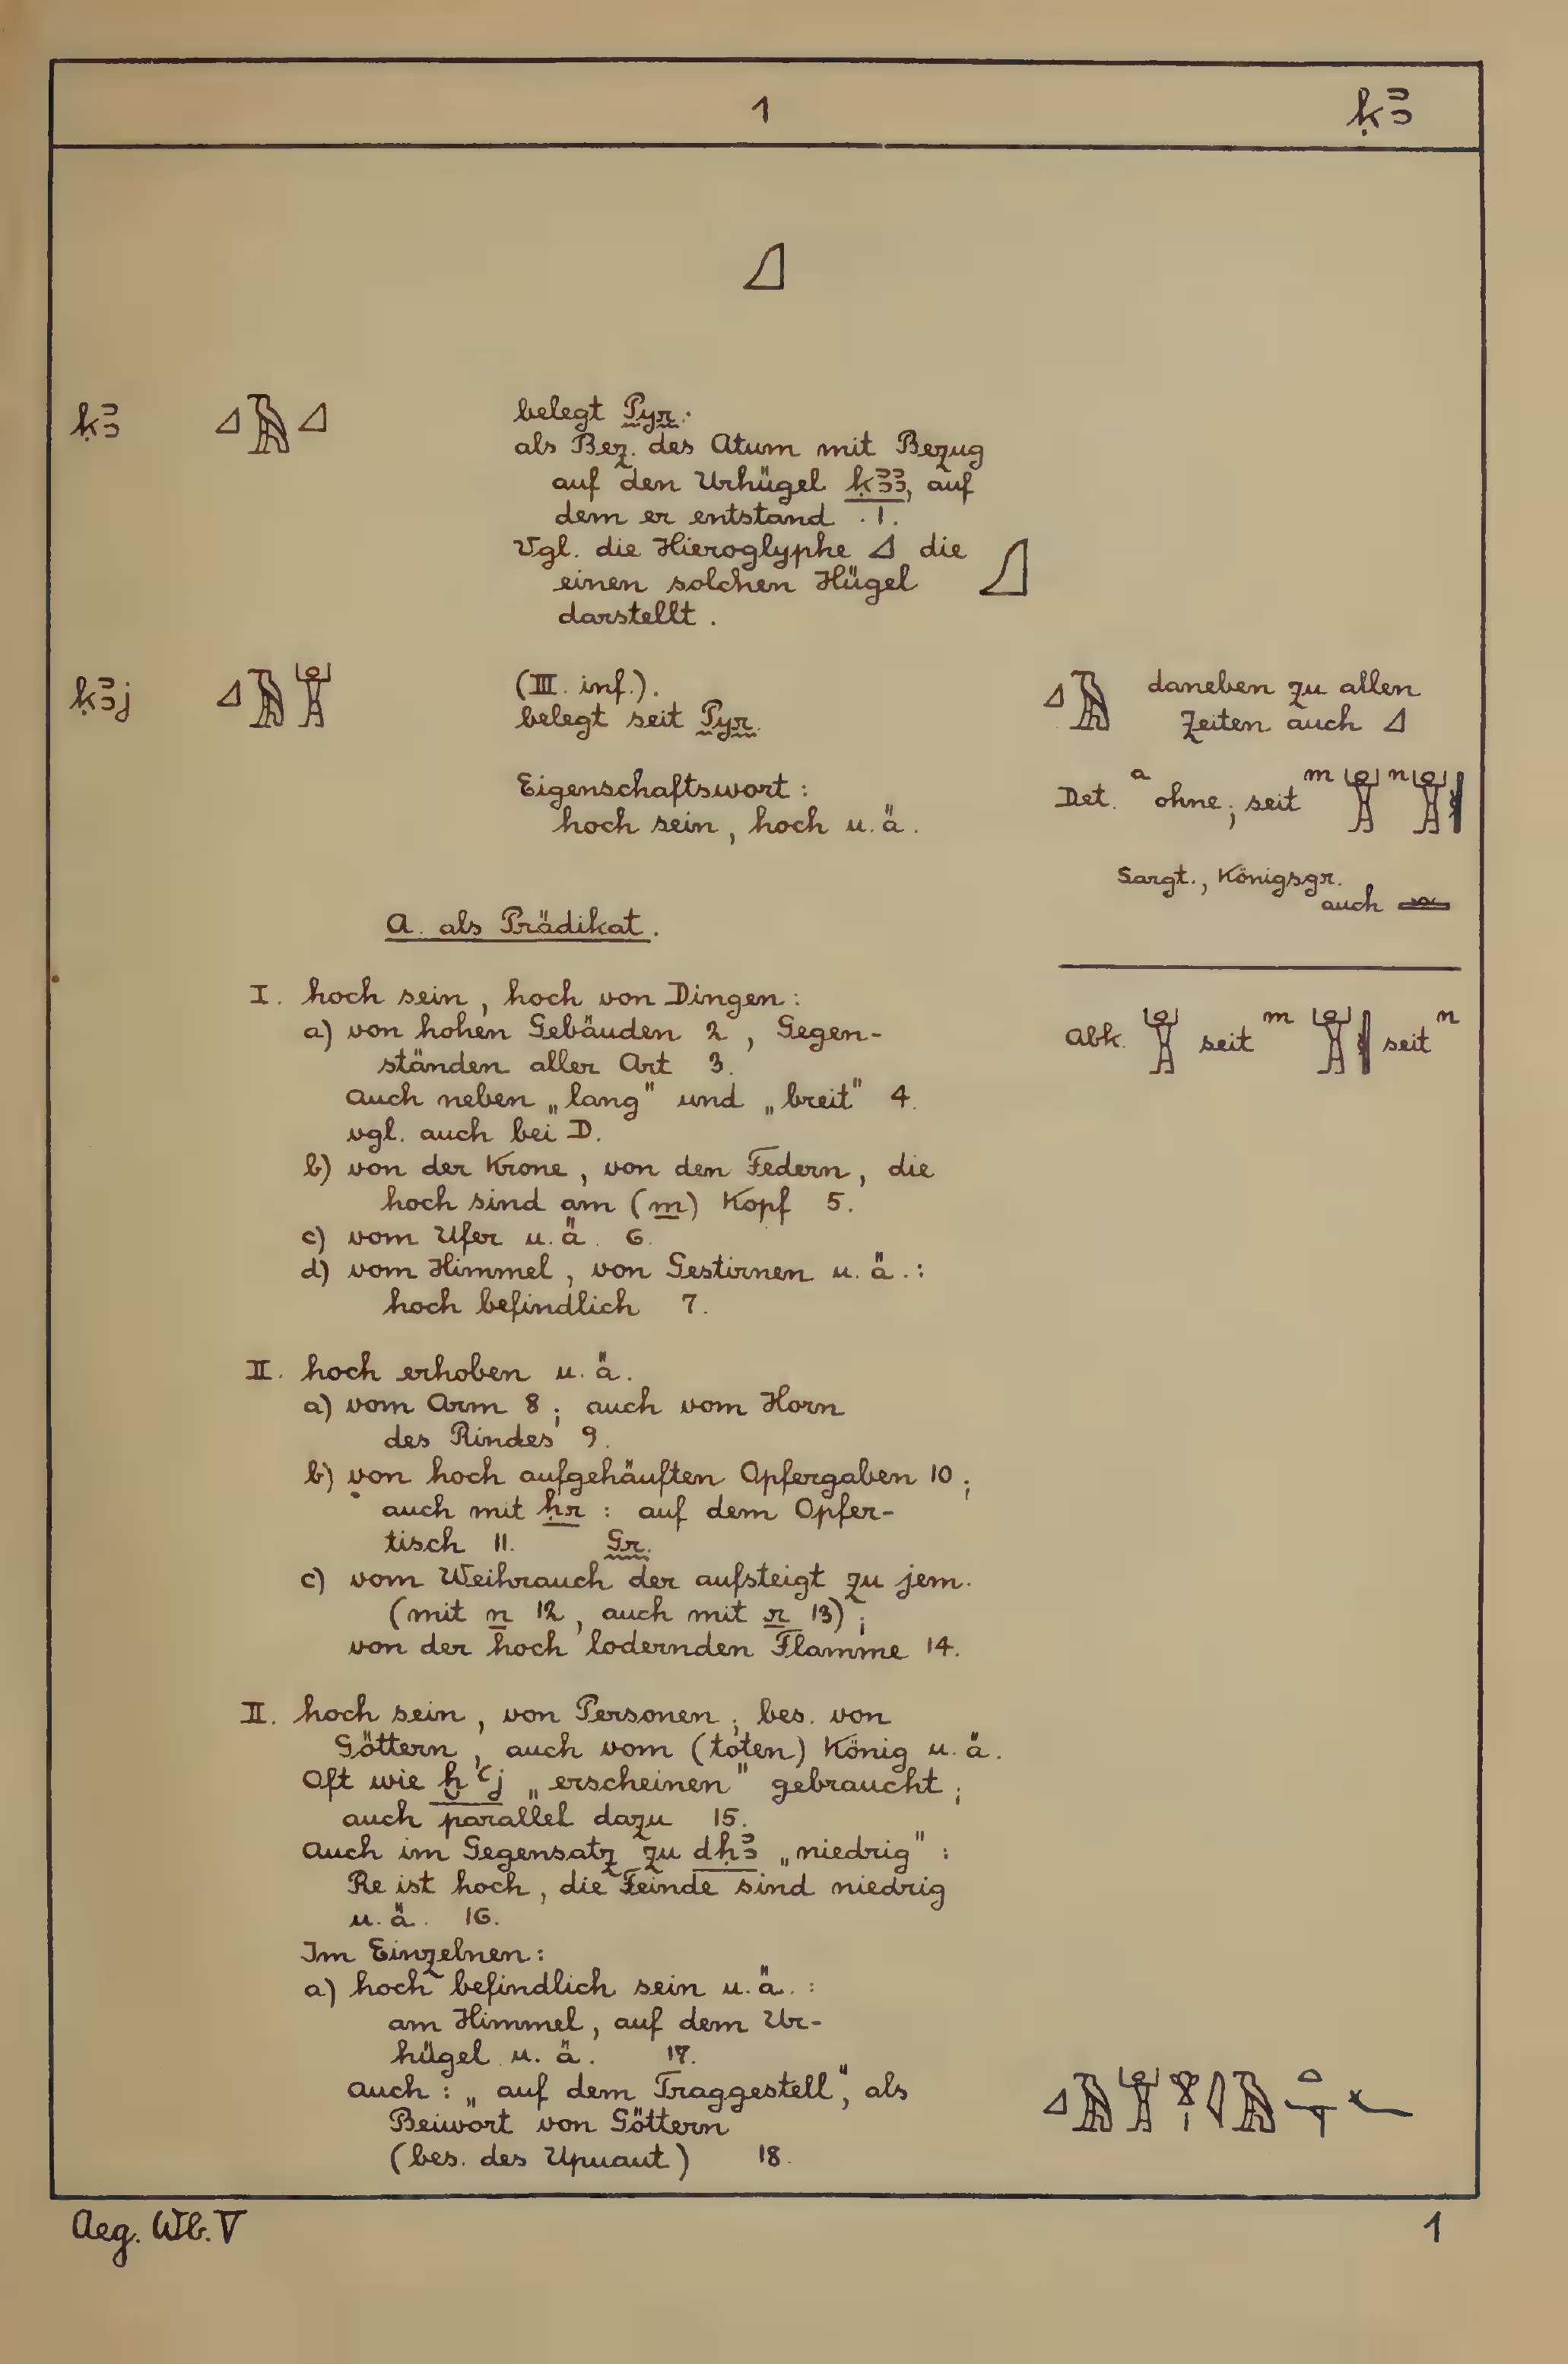 1 ḳꜣ
𓈎
ḳꜣ 𓈎𓄿𓈎 belegt Pyr.
als Bez. des Atum mit Bezug
auf den Urhügel ḳꜣꜣ, auf
dem er entstand . 1.
Vgl. die Hieroglyphe 𓈎 die
einen solchen Hügel 𓈎
darstellt .
ḳꜣj 𓈎𓄿𓀠 (III. inf.).
belegt seit Pyr.
Eigenschaftswort :
hoch sein , hoch u. ä .
𓈎𓄿 daneben zu allen
Zeiten auch 𓈎
Det. a ohne ; seit m 𓀠 n 𓀠𓏛
Sargt., Königsgr.
auch
Abk. 𓀠 seit m 𓀠𓏛 seit n
A. als Prädikat .
I. hoch sein , hoch von Dingen :
a) von hohen Gebäuden 2 , Gegen-
ständen aller Art 3.
Auch neben „lang" und „breit" 4.
vgl. auch bei D.
b) von der Krone , von den Federn , die
hoch sind am (m) Kopf 5.
c) vom Ufer u. ä. 6.
d) vom Himmel , von Gestirnen u. ä. :
hoch befindlich 7.
II. hoch erhoben u. ä.
a) vom Arm 8 ; auch vom Horn
des Rindes 9.
b) von hoch aufgehäuften Opfergaben 10 ;
auch mit ḥr : auf dem Opfer-
tisch 11. Gr.
c) vom Weihrauch der aufsteigt zu jem.
(mit n 12 , auch mit r 13) ;
von der hoch lodernden Flamme 14.
II. hoch sein , von Personen ; bes. von
Göttern , auch vom (toten) König u. ä.
Oft wie ḫꜥj „erscheinen" gebraucht ;
auch parallel dazu 15.
Auch im Gegensatz zu dḥꜣ „niedrig" :
Re ist hoch , die Feinde sind niedrig
u. ä. 16.
Im Einzelnen :
a) hoch befindlich sein u. ä. :
am Himmel , auf dem Ur-
hügel u. ä. 17.
auch : „ auf dem Traggestell", als
Beiwort von Göttern
(bes. des Upuaut) 18.
Aeg. Wb. V 1